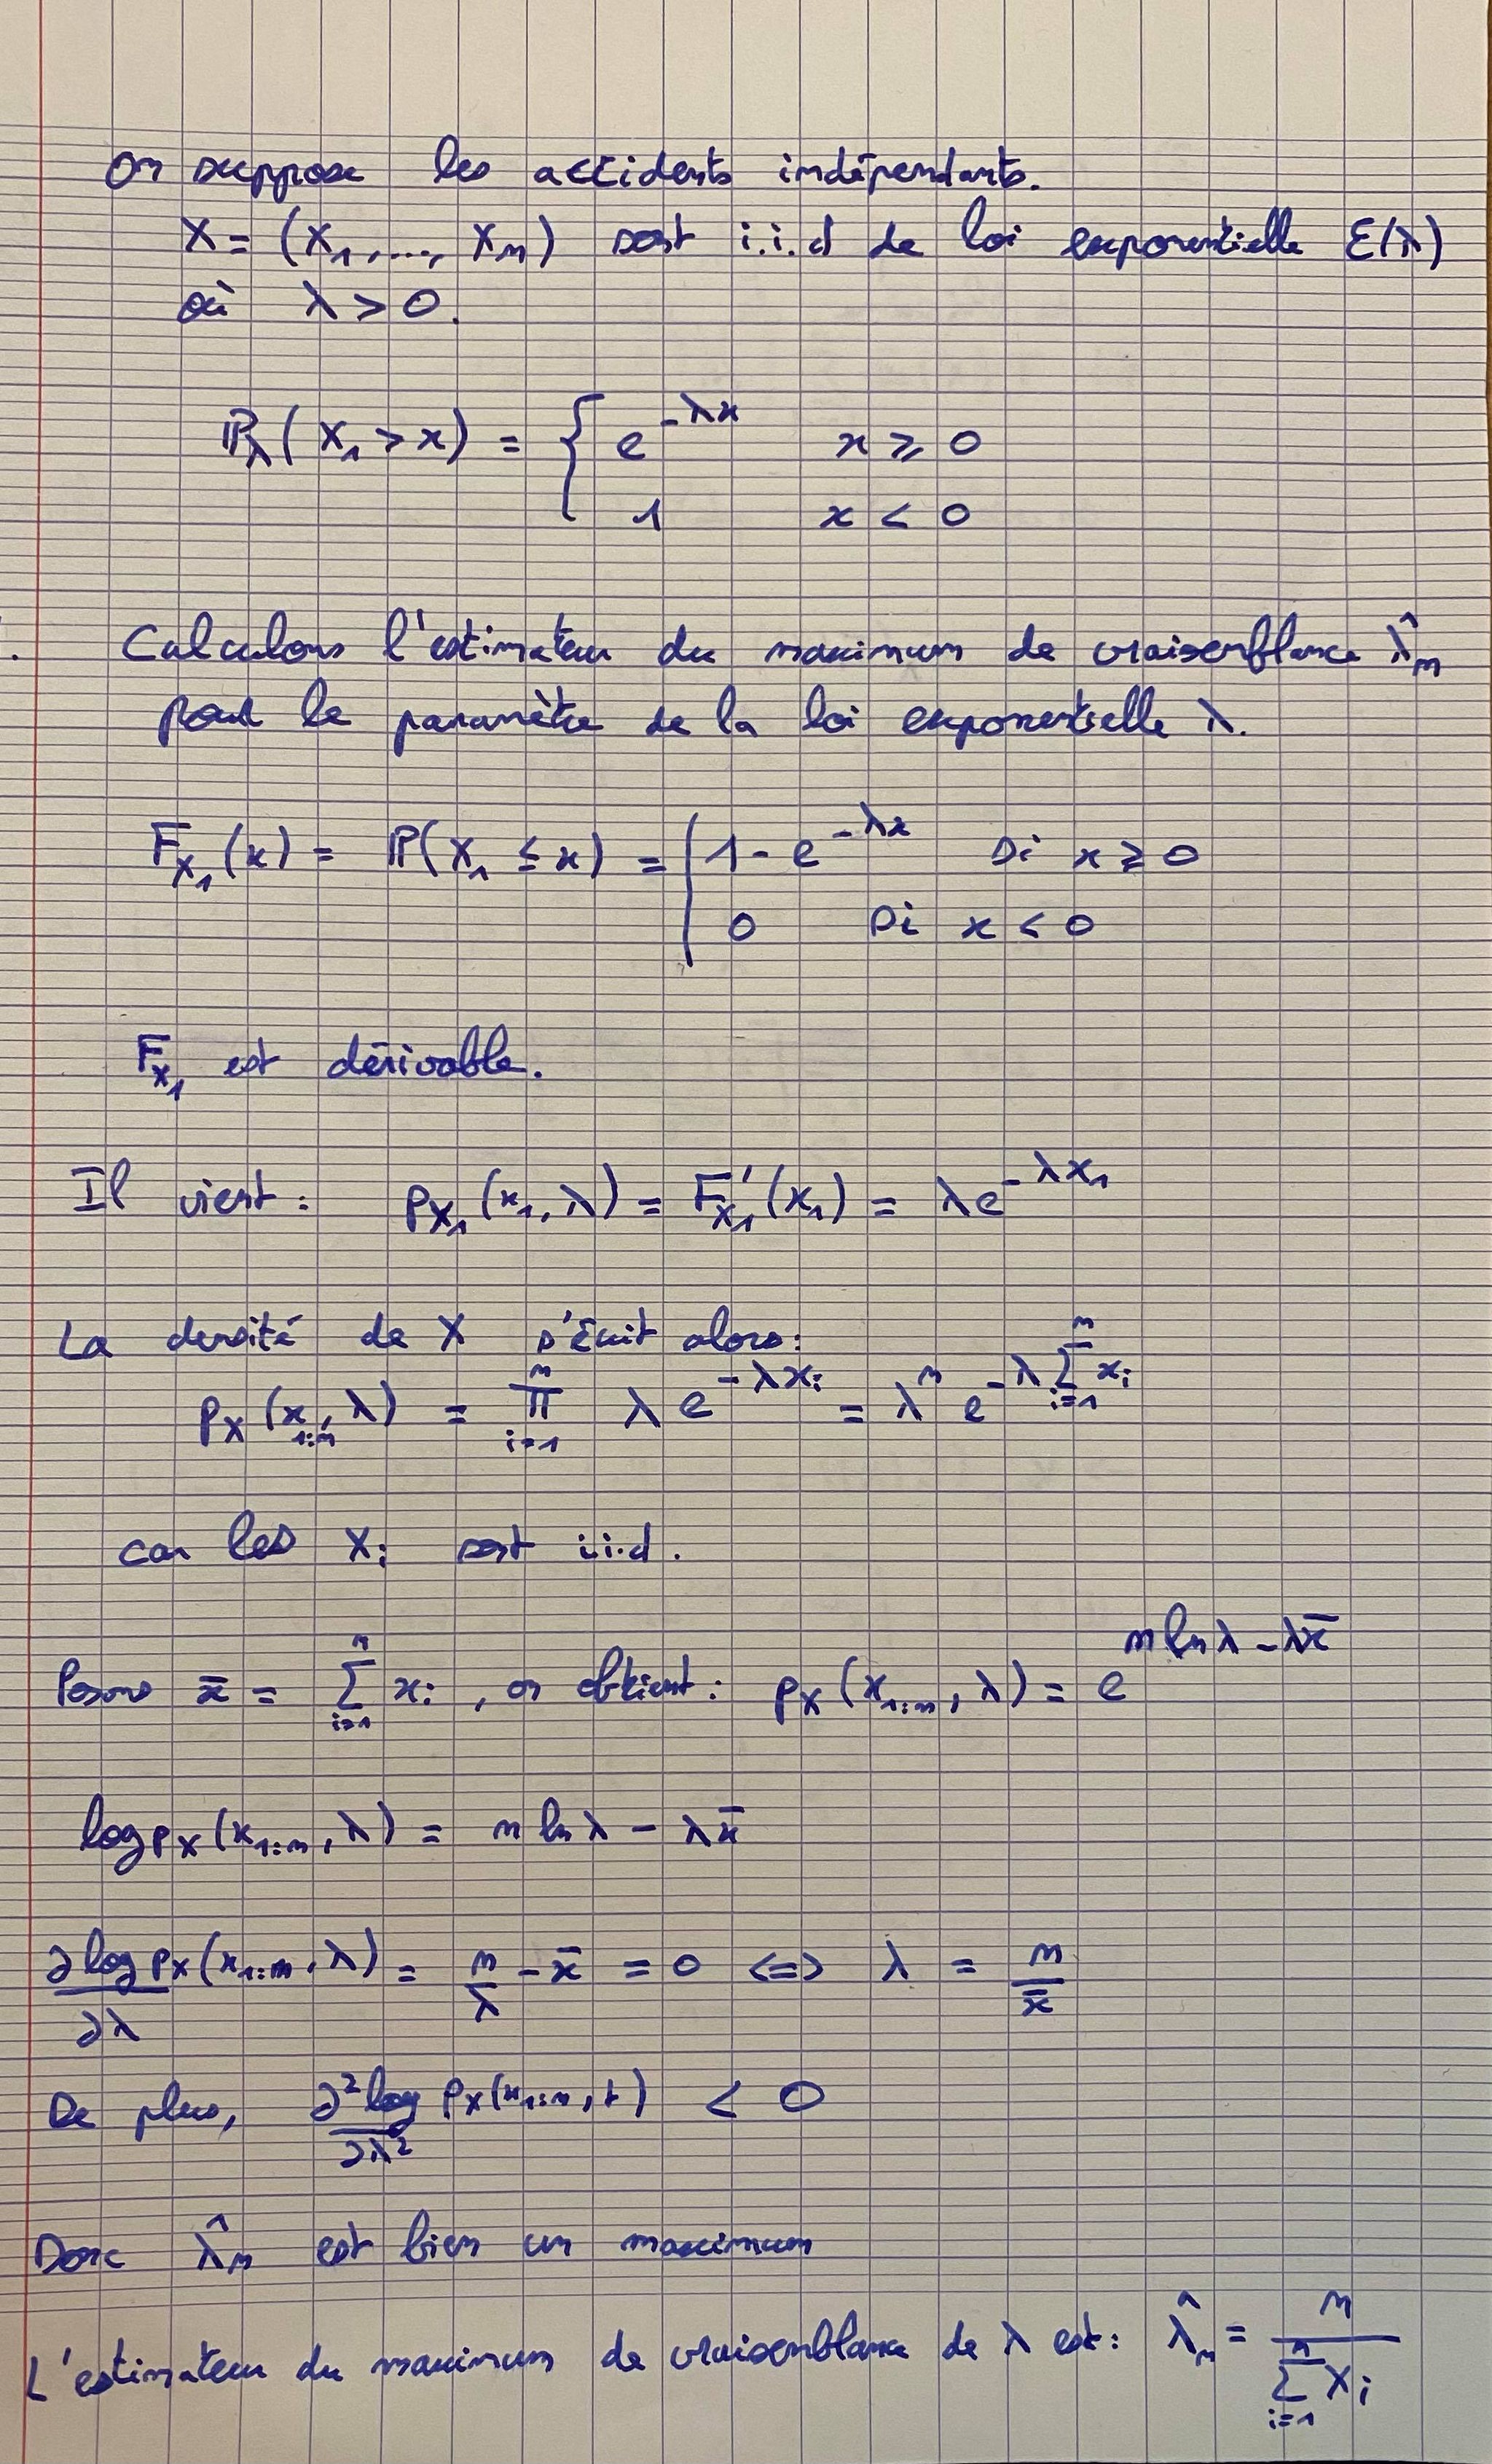 On suppose les accidents indépendants.
X = (X₁, ..., Xₙ) sont i.i.d de loi exponentielle Ɛ(λ)
où λ > 0.
ℙ_λ(X₁ > x) = { e^{-λx} x ⩾ 0
1 x < 0
. Calculons l'estimateur du maximum de vraisemblance λ̂ₙ
pour le paramètre de la loi exponentielle λ.
F_{X₁}(x) = ℙ(X₁ ≤ x) = | 1 - e^{-λx} si x ⩾ 0
0 si x < 0
F_{X₁} est dérivable.
Il vient : p_{X₁}(x₁, λ) = F'_{X₁}(x₁) = λe^{-λx₁}
La densité de X s'écrit alors :
p_X(x_{1:n}, λ) = ∏_{i=1}^{n} λ e^{-λx_i} = λⁿ e^{-λ ∑_{i=1}^{n} x_i}
car les X_i sont i.i.d.
Posons x̄ = ∑_{i=1}^{n} x_i , on obtient : p_X(x_{1:n}, λ) = e^{n ln λ - λx̄}
log p_X(x_{1:n}, λ) = n ln λ - λx̄
∂ log p_X(x_{1:n}, λ)/∂λ = n/λ - x̄ = 0 <=> λ = n/x̄
De plus, ∂² log/∂λ² p_X(x_{1:n}, λ) < 0
Donc λ̂ₙ est bien un maximum
L'estimateur du maximum de vraisemblance de λ est : λ̂ₙ = n/∑_{i=1}^{n} X_i